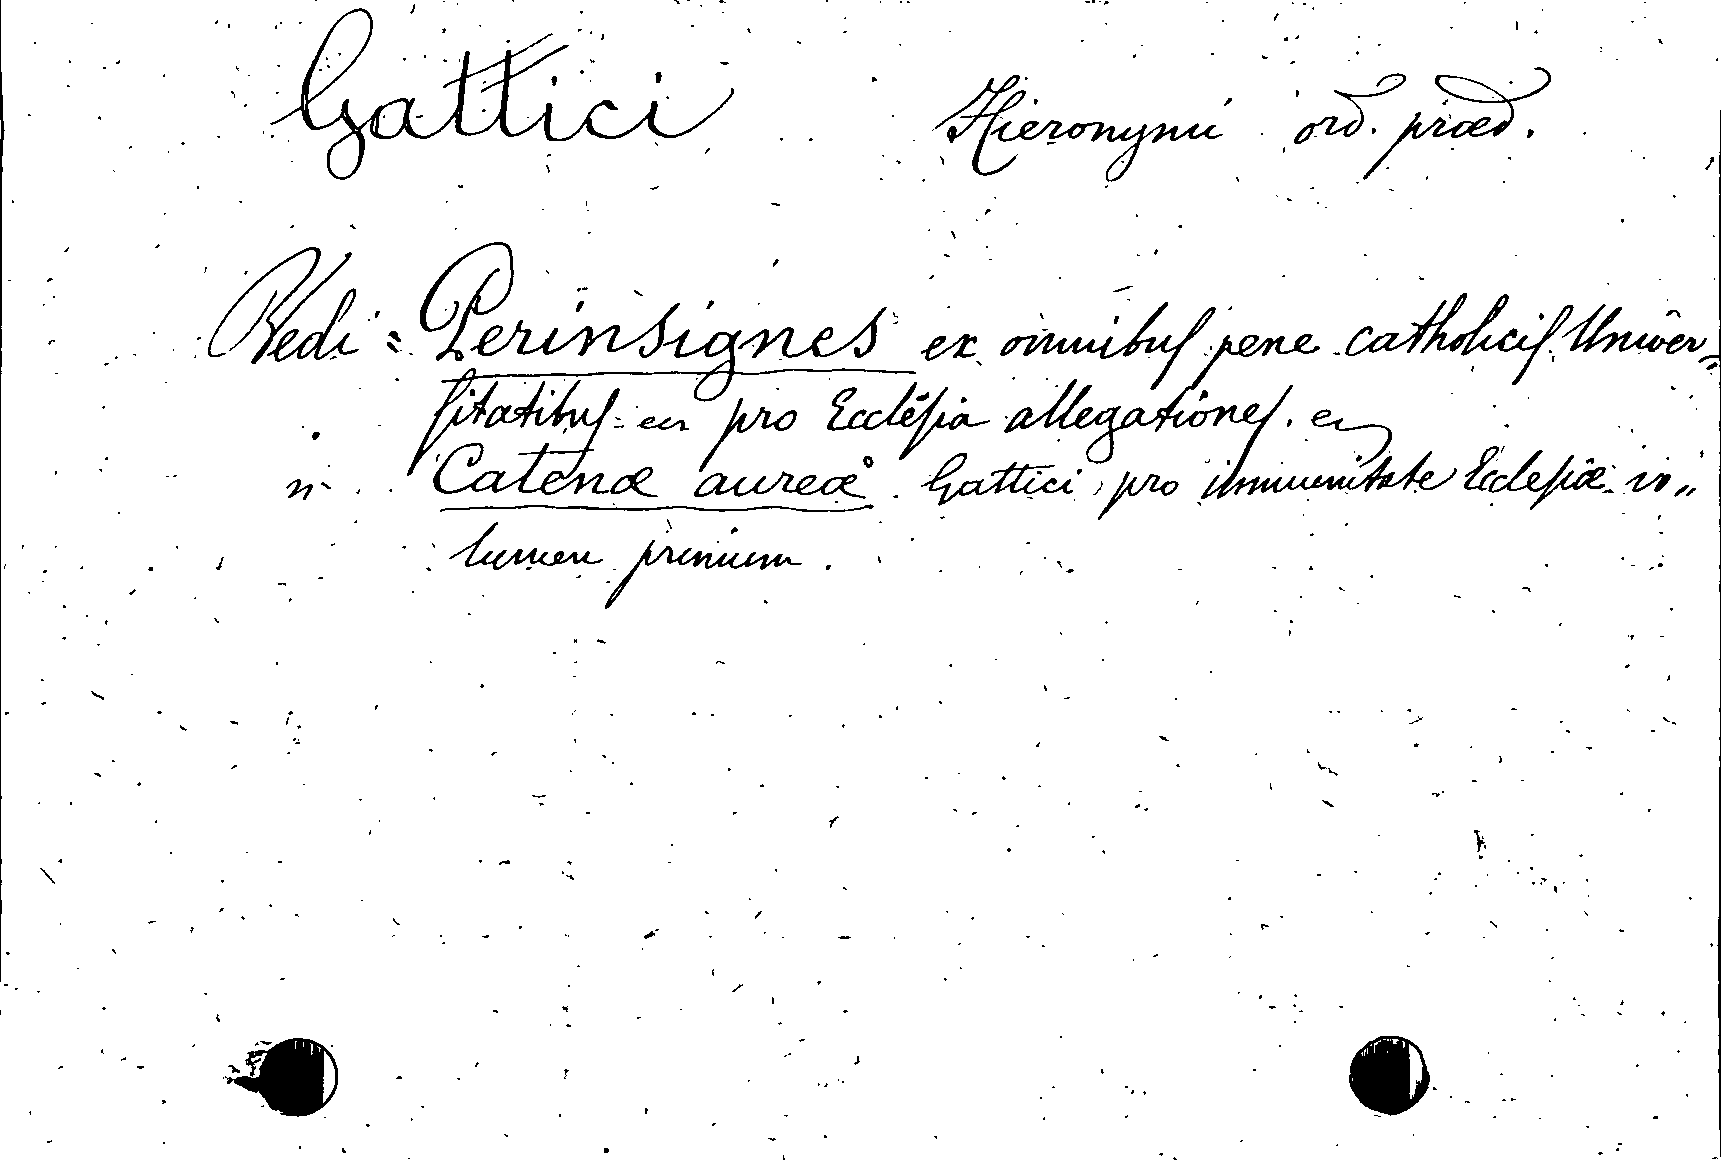 Gattici Hieronymi ord. præd.
Vedi = Perinsignes ex omnibus pene catholicis Univer=
sitatibus en pro Ecclesia allegationes. en
" Catenæ aureæ Gattici pro immunitate Ecclesiæ vo„
lumen primum.